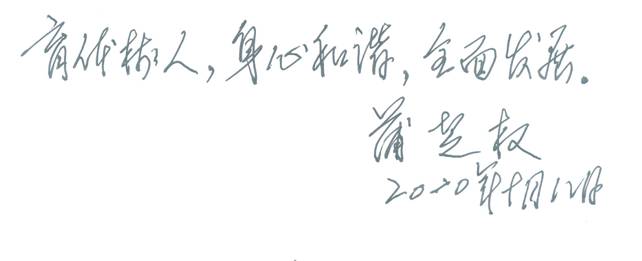 育体树人，身心和谐，全面发展。
蒲芝权
2020年十月12日